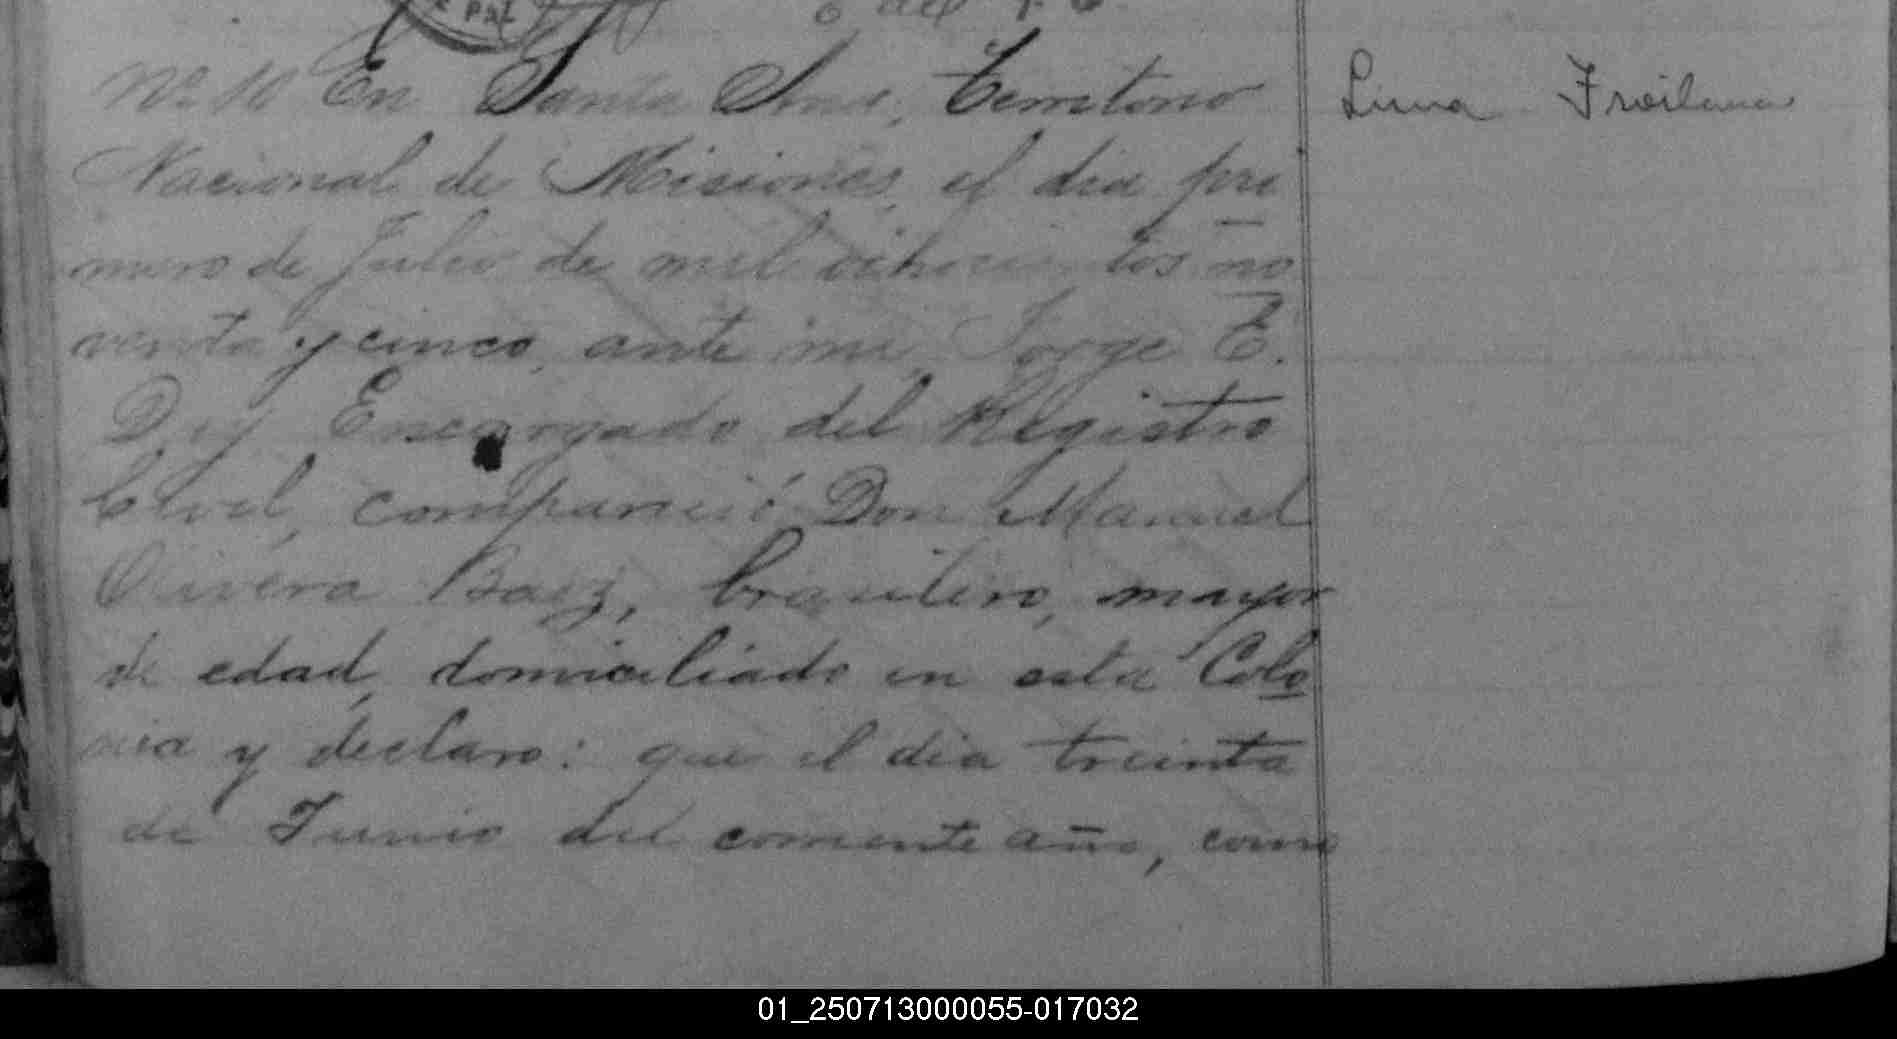 Nº 10 En Santa Ana, Territorio
Lima Froilana
Nacional de Misiones, el dia pri
mero de Julio de mil ochocientos no
venta y cinco, ante mi, Jorge E.
Encargado del Registro
Civil, compareció Don Manuel
Olivera Baez, brasilero, mayor
de edad, domiciliado en esta Colo
nia y declaro: que el dia treinta
de Junio del corriente año, como
01_250713000055-017032